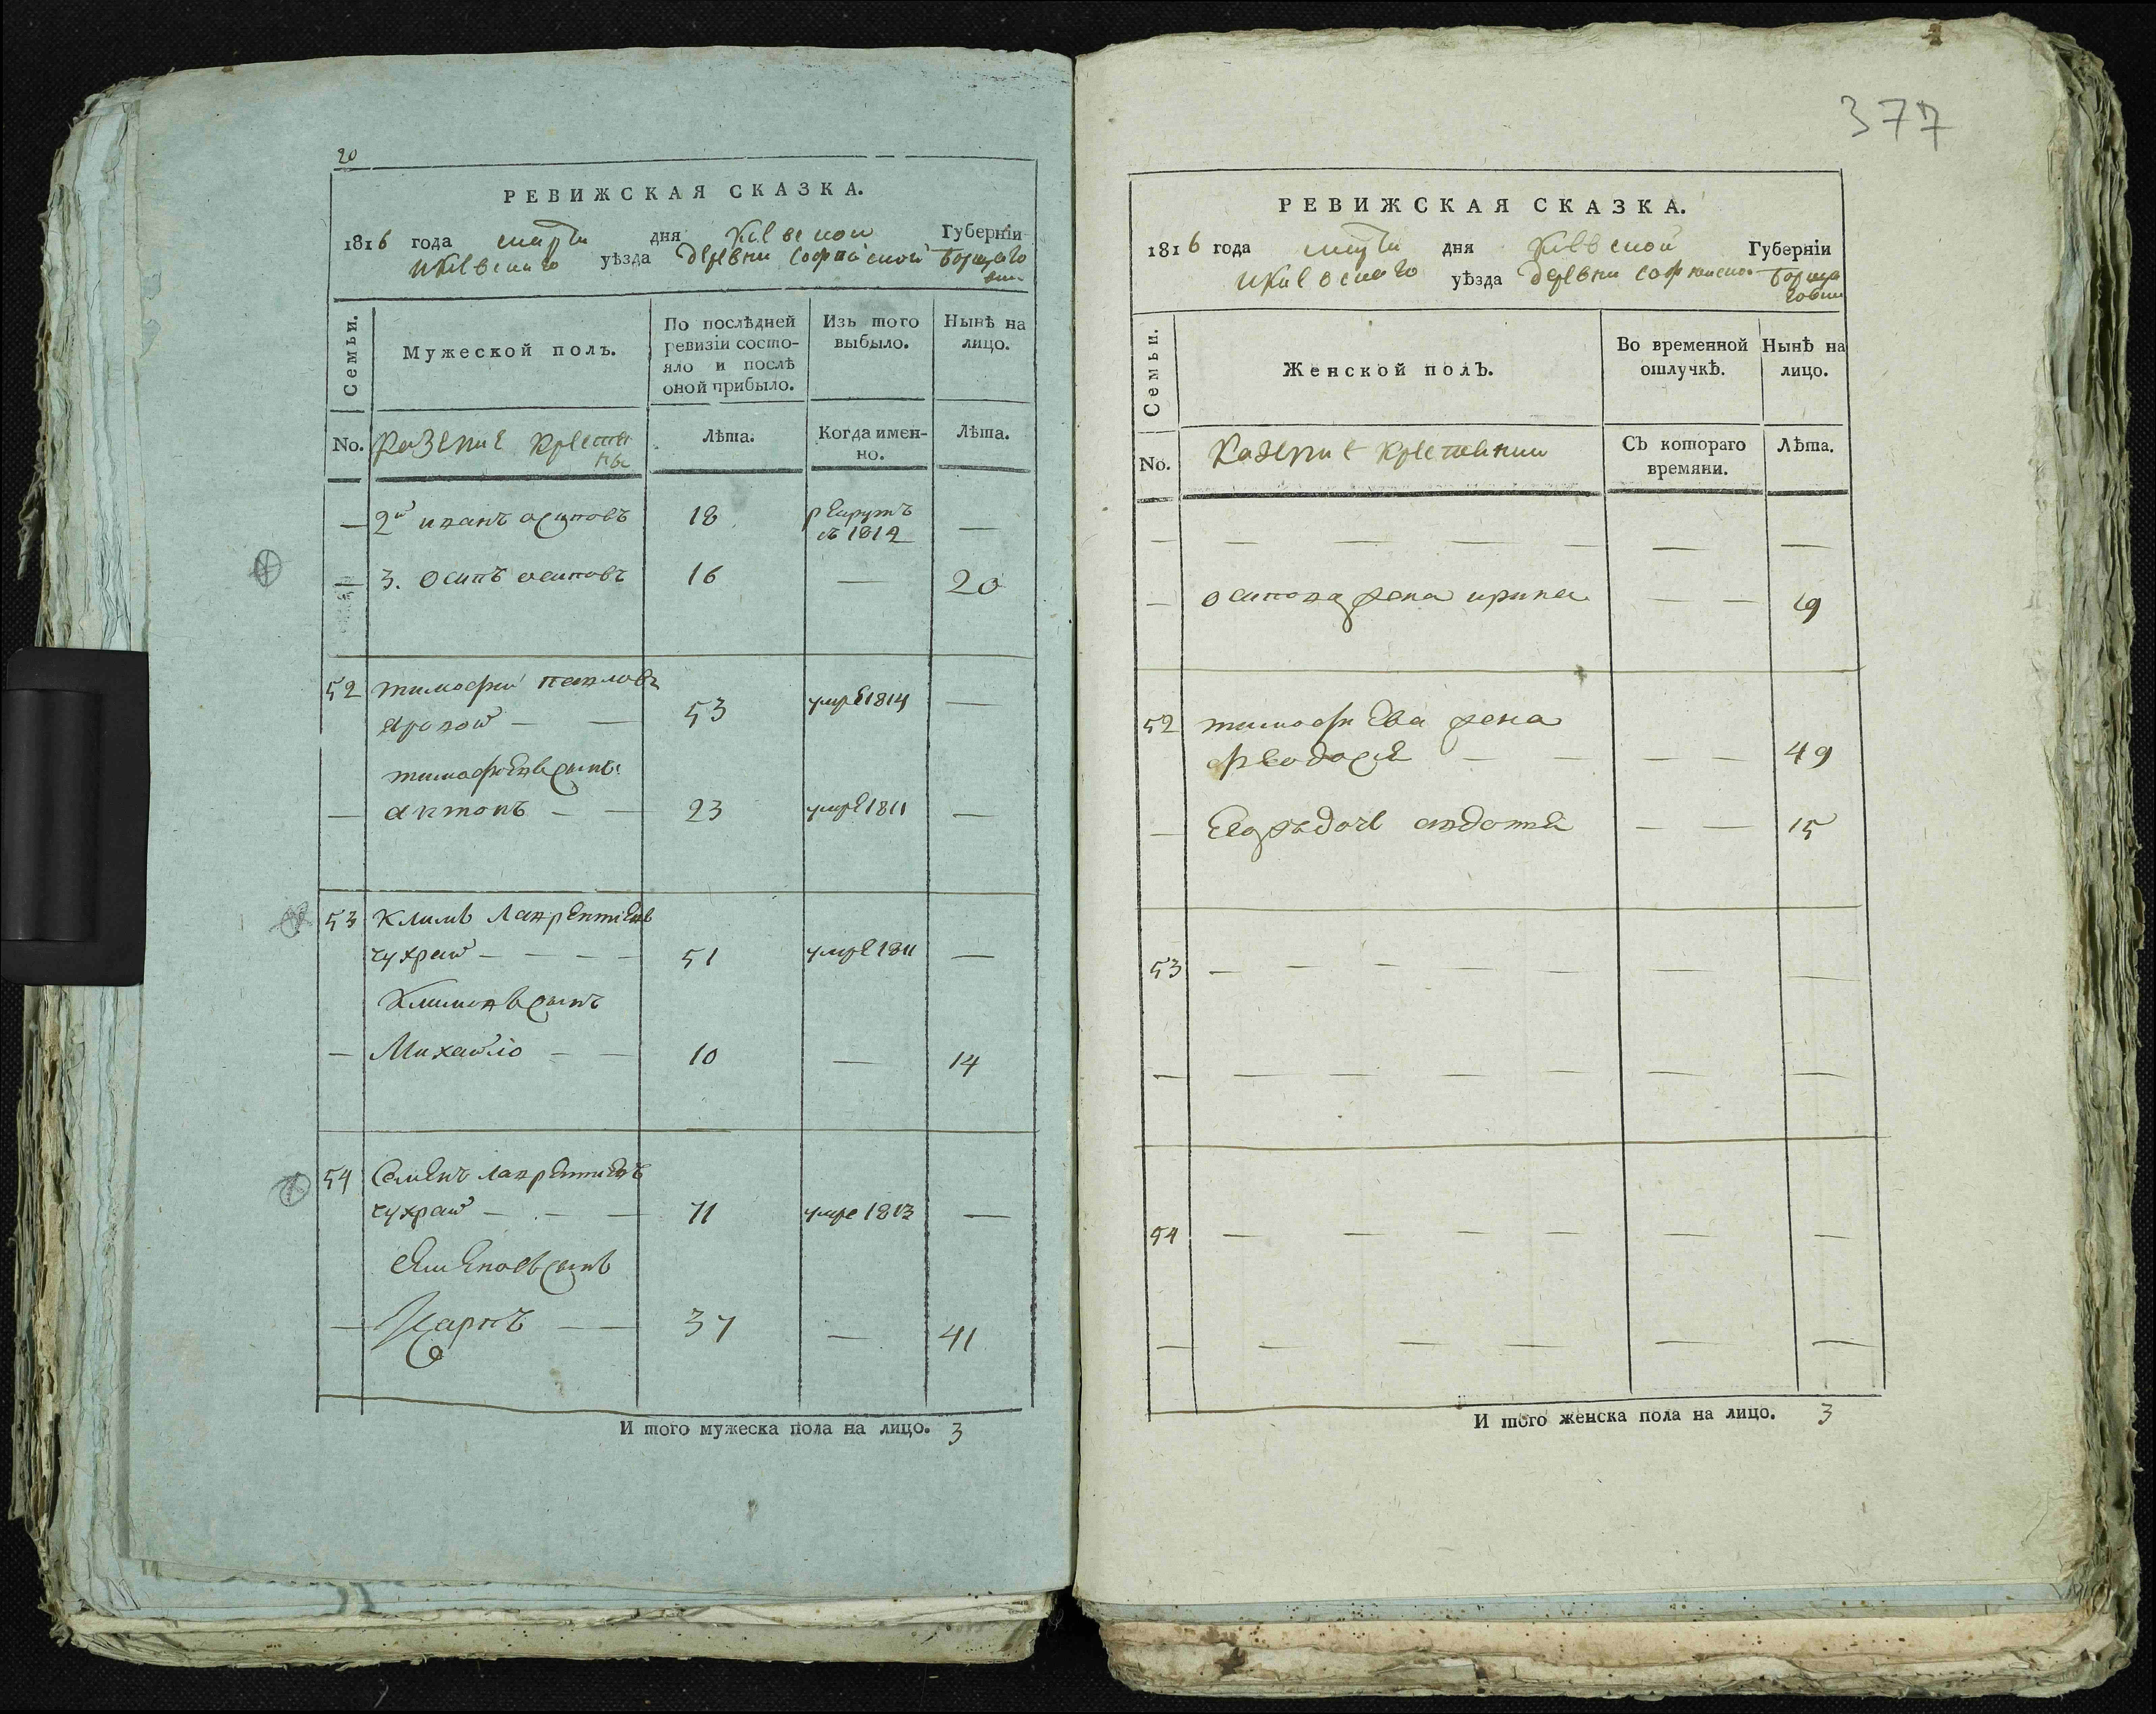 20
РЕВИЖСКАЯ СКАЗКА.
1816 года марта дня Киевской Губерніи
и Киевскаго уѣзда деревни Софийской Борщаго
вки
Семьи.
Мужеской полъ.
По послѣдней
ревизіи состо-
яло и послѣ
оной прибыло.
Изъ того
выбыло.
Нынѣ на
лицо.
No. Казение крестя
ны
Лѣта.
Когда имен-
но.
Лѣта.
— 2й иванъ осиповъ 18 рекрутъ
въ 1812 —
— 3. осипъ осиповъ 16 — 20
52 тимофей павловъ
53 умре 1814 —
тимофеевъ сынъ
— антонъ — — 23 умре 1811 —
53 Климъ Лаврентиевъ
чухрай — — — — 51 умре 1811 —
Климовъ сынъ
— Михайло — — 10 — 14
54 Семенъ лаврентиевъ
чухрай — — — 71 умре 1813 —
Семеновъ сынъ
— Карпъ — — 37 — 41
И того мужеска пола на лицо. 3
377
РЕВИЖСКАЯ СКАЗКА.
1816 года марта дня Киевской Губерніи
и Киевскаго уѣзда деревни софийской Борща
говки
Семьи.
Женской полъ.
Во временной
отлучкѣ.
Нынѣ на
лицо.
No. Казение крестянки
Съ котораго
времяни.
Лѣта.
— — — — — — —
— осипова жена ирина — — 19
52 тимофеева жена
феодосия — — — — 49
— Егожъ дочь авдотя — — 15
53 — — — — — — —
— — — — — — — —
54 — — — — — —
— — — — — —
И того женска пола на лицо. 3